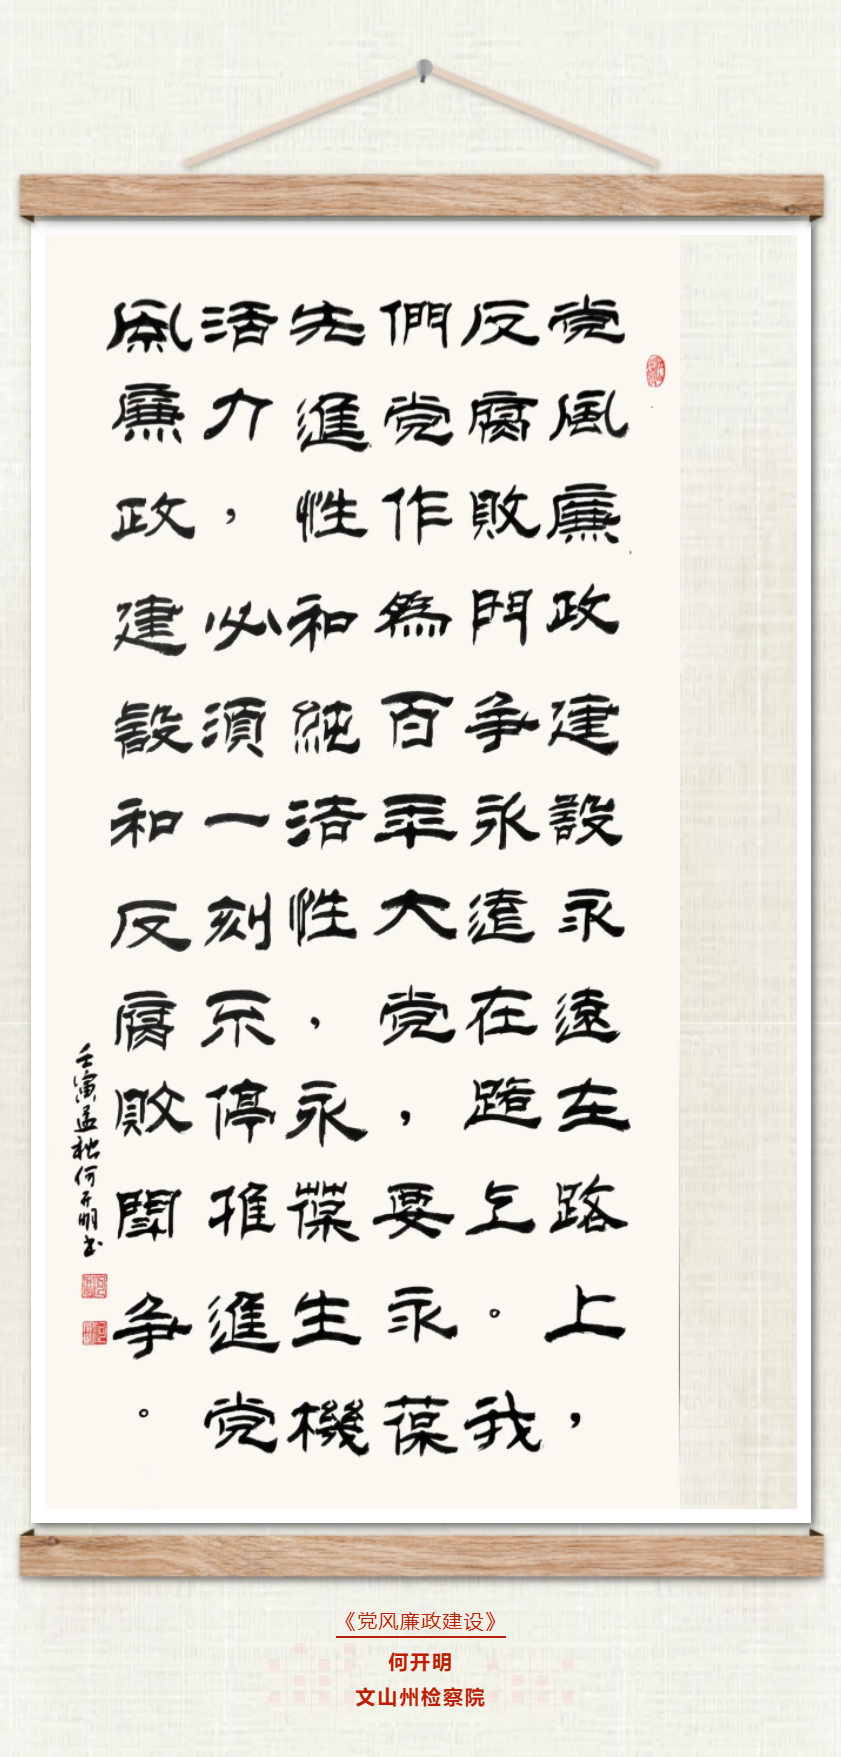 党風廉政建設永遠在路上，
反腐敗門争永遠在路上。我
們党作爲百年大党，要永葆
先進性和純洁性，永葆生機
活力，必須一刻不停推進党
風廉政建設和反腐敗鬭争。
壬寅孟秋何开明书
《党风廉政建设》
何开明
文山州检察院